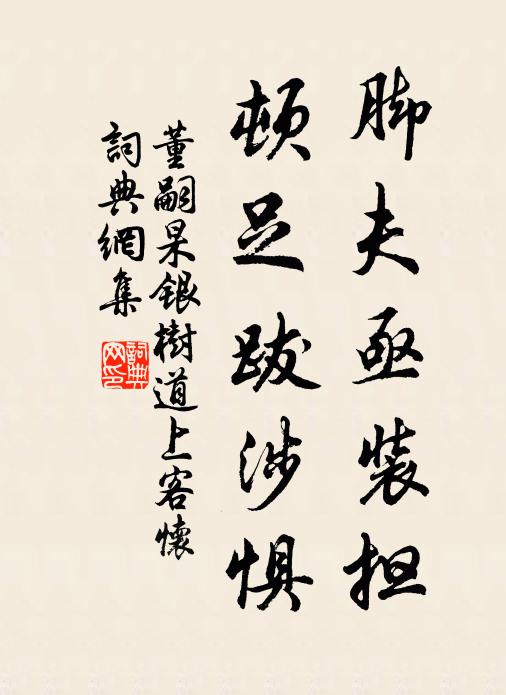 脚夫亟装担
顿足跋涉惧
董嗣杲银樹道上客懷
詞典網集
詞典网印